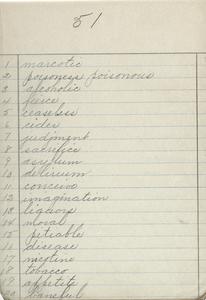 51
1 marcotic
2 poisoness poisonous
3 alcoholic
4 fierce
5 ceaseless
6 cider
7 judgment
8 sacrifice
9 asylum
10 delirium
11 conceive
12 imagination
13 liquors
14 moral
15 petiable
16 disease
17 nicotine
18 tobacco
19 appetite
20 baneful